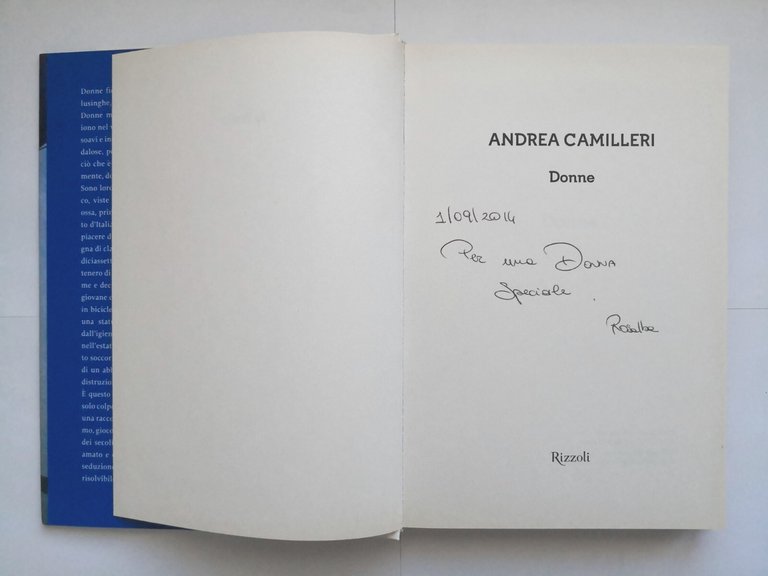 Donne fi
lusinghe,
Donne m
iono nel v
soavi e in
dalose, pe
ciò che è
mente, do
Sono loro
co, viste
ossa, prin
to d'Itali
piacere d
gna di cla
diciassett
tenero di
me e dec
giovane
in bicicle
una stat
dall'igien
nell'estat
to soccor
di un abl
distruzio
È questo
solo colp
una racco
mo, gioco
dei secoli
amato e
seduzion
risolvibil
ANDREA CAMILLERI
Donne
1/09/2014
Per una Donna
Speciale.
Rosalba
Rizzoli